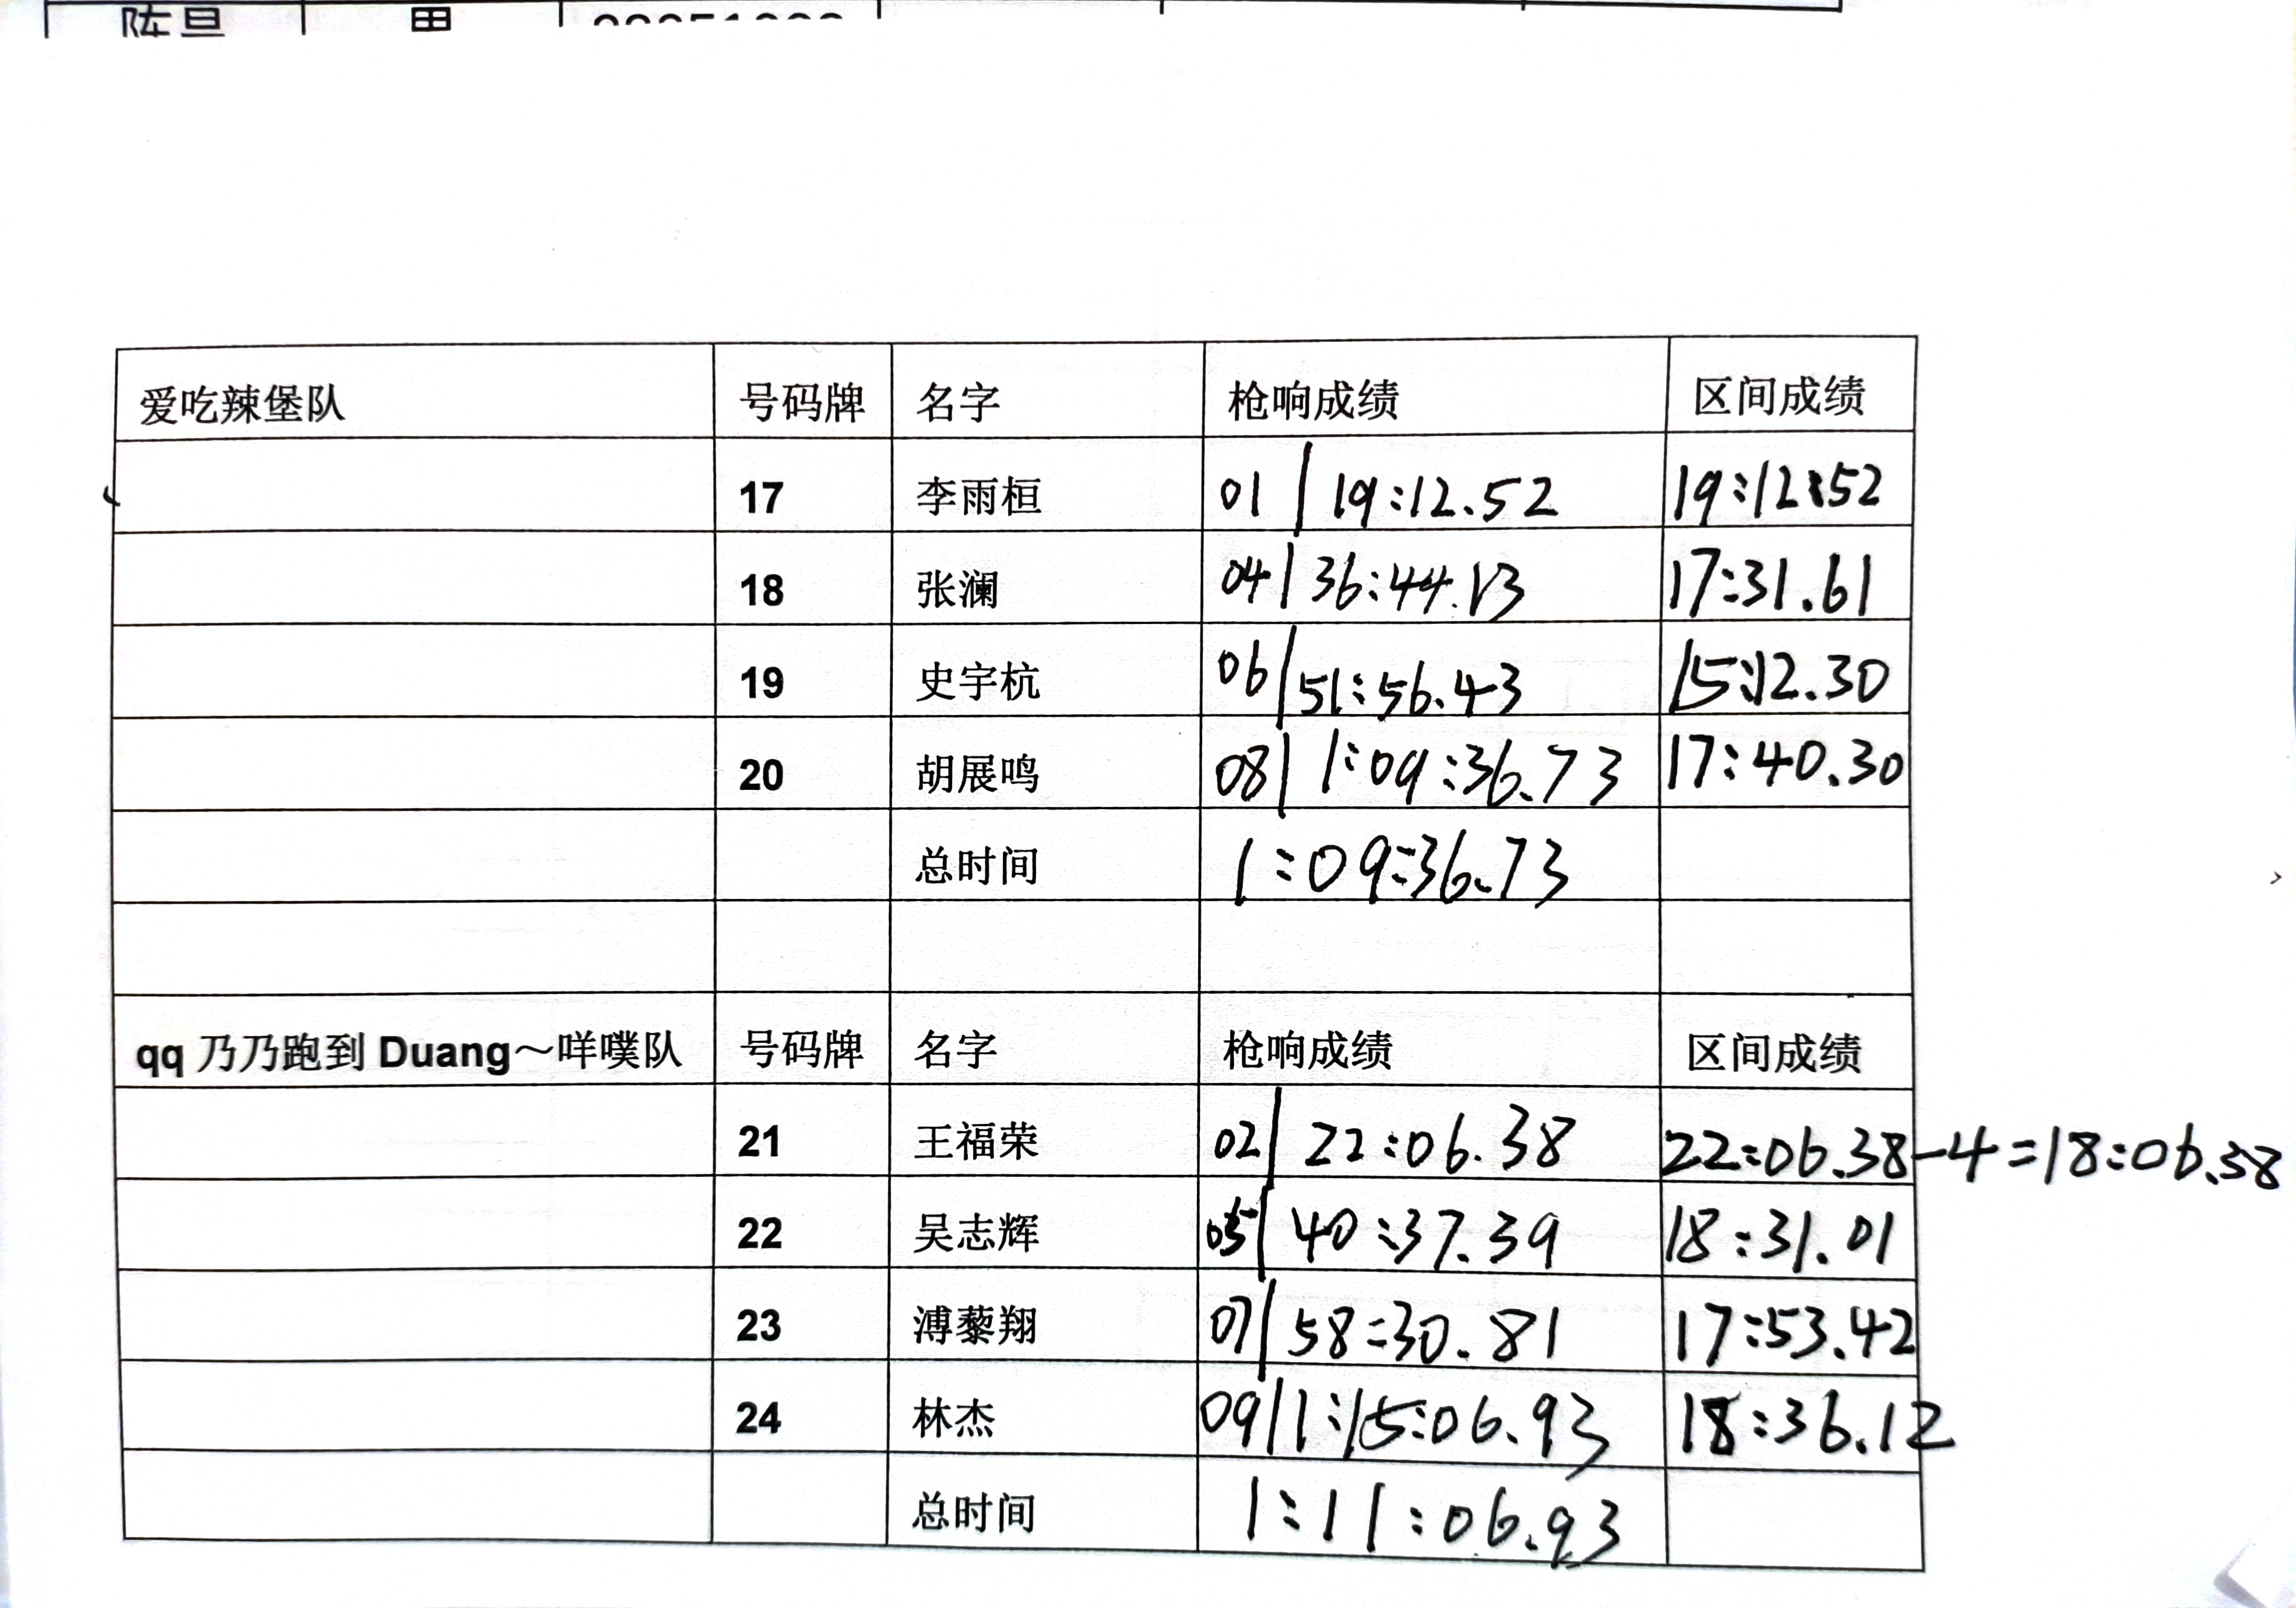 爱吃辣堡队 号码牌 名字 枪响成绩 区间成绩
17 李雨桓 01 | 19:12.52 19:12:52
18 张澜 04 | 36:44.13 17:31.61
19 史宇杭 06 | 51:56.43 15:12.30
20 胡展鸣 08 | 1:09:36.73 17:40.30
总时间 1:09:36.73
qq 乃乃跑到 Duang～咩噗队 号码牌 名字 枪响成绩 区间成绩
21 王福荣 02 | 22:06.38 22:06.38-4=18:06.38
22 吴志辉 05 | 40:37.39 18:31.01
23 溥藜翔 07 | 58:30.81 17:53.42
24 林杰 09 | 1:15:06.93 18:36.12
总时间 1:11:06.93